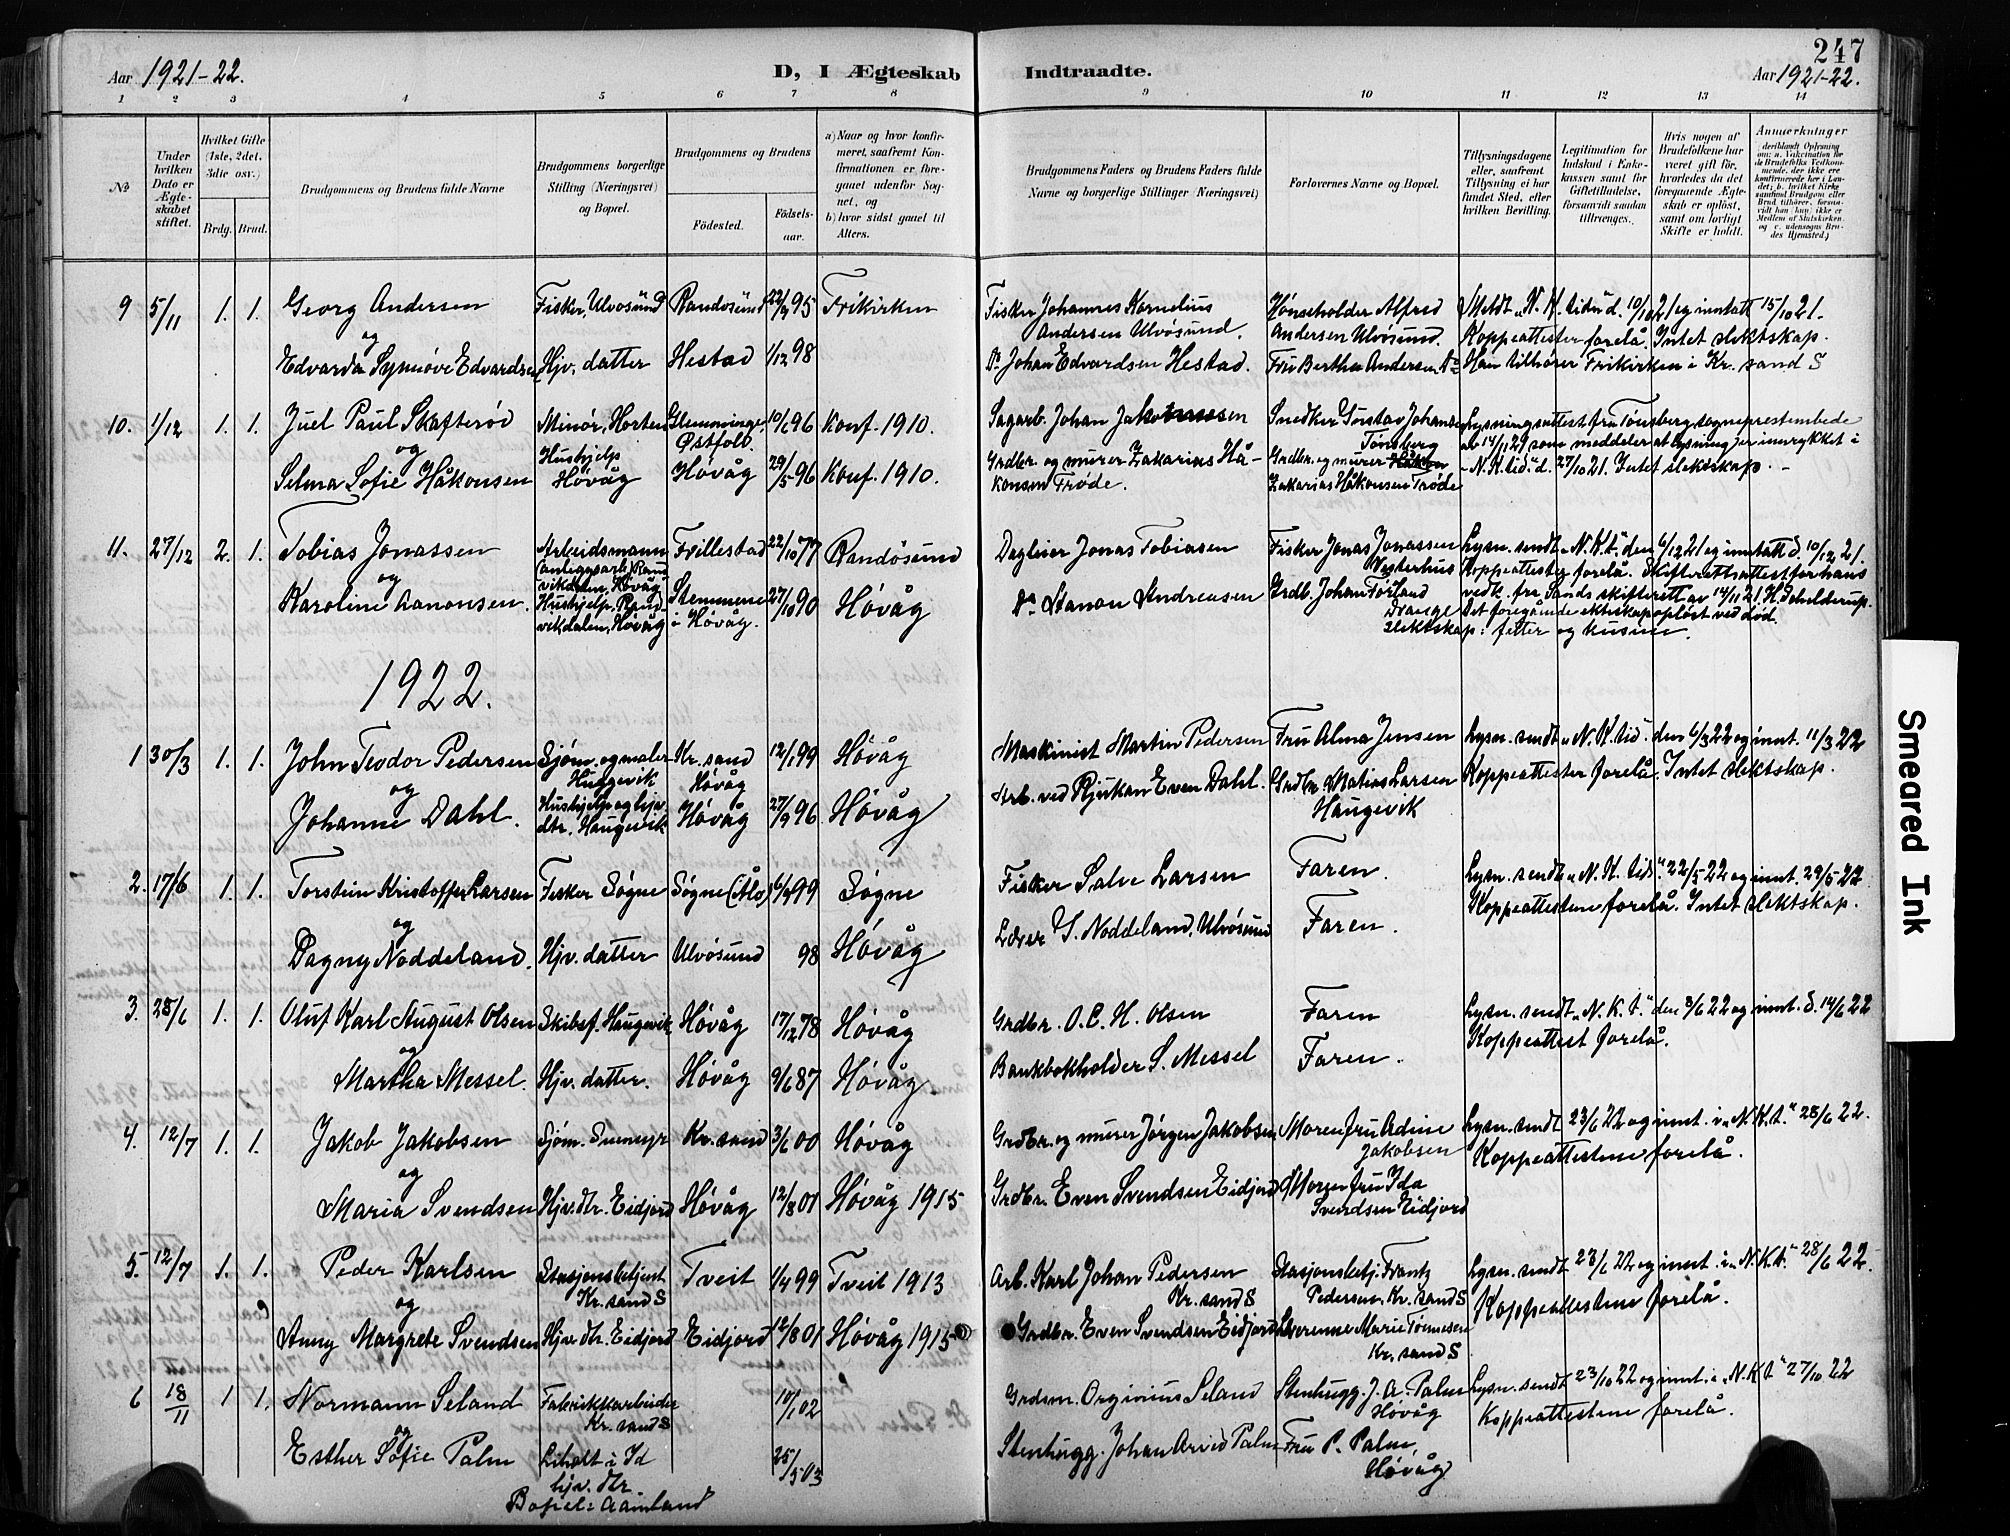 247
Aar 1921-22.
D, I Ægteskab
Indtraadte.
Aar 1921-22.
1 2 3 4 5 6 7 8 9 10 11 12 13 14
No
Under hvilken Dato er Ægteskabet stiftet.
Hvilket Gifte (1ste, 2det, 3die osv.)
Brdg. Brud.
Brudgommens og Brudens fulde Navne
Brudgommens borgerlige Stilling (Næringsvei) og Bopæl.
Brudgommens og Brudens
Födested.
Födselsaar.
a) Naar og hvor konfirmeret, saafremt Konfirmationen er foregaaet udenfor Sognet, og
b) hvor sidst gaaet til Alters.
Brudgommens Faders og Brudens Faders fulde Navne og borgerlige Stillinger (Næringsvei)
Forlovernes Navne og Bopæl.
Tillysningsdagene eller, saafremt Tillysning ei har fundet Sted, efter hvilken Bevilling.
Legitimation for Indskud i Enkekassen samt for Giftetilladelse, forsaavidt saadan tiltrænges.
Hvis nogen af Brudefolkene har været gift før, hvorledes da det foregaaende Ægteskab er opløst, samt om lovligt Skifte er holdt.
Anmerkninger
(deriblandt Oplysning om: a. Vakcination for de Brudefolks Vedkommende, der ikke ere konfirmerede her i Landet; b. hvilket Kirkesamfund Brudgom eller Brud tilhører, forsaavidt han (hun) ikke er Medlem af Statskirken, og c. udensogns Brudes Hjemsted.)
9 5/11 1. 1. Georg Andersen Fisker, Ulvøsund Randøsund 22/9 95 Frikirken Fisker Johannes Kornelius Hønseholder Alfred Meldt „N. K. tidn" d. 10/10 21 og inntatt 15/10 21.
og Andersen Ulvøsund. Andersen Ulvøsund. Koppeattester forelå. Intet slektskap.
Edvarda Synnøve Edvardsen Hjv. datter Hestad 1/12 98 Do Johan Edvardsen Hestad. Fru Bertha Andersen, Do Han tilhører Frikirken i Kr. sand S
10. 1/12 1. 1. Juel Paul Skafterød Minør, Horten Glemminge, Østfold 10/6 96 Konf. 1910. Sagarb. Johan Snedker Gustav Johansen Tønsberg Lysningsattest fra Tønsberg sogneprestembede
og Hushjelp av 14/11 21 som meddeler at lysning er innrykket i
Selma Sofie Håkonsen Høvåg Høvåg 29/5 96 Konf. 1910. Grdbr. og murer Zakarias Håkonsen Trøde. Grdbr. og murer Zakarias Håkonsen Trøde - N. K. tid." d. 27/10 21. Intet slektskap. -
11. 27/12 2. 1. Tobias Jonassen Arbeidsmann (anleggsarb.) Randvikdalen, Høvåg Frillestad 22/10 77 Randøsund Dagleier Jonas Tobiasen Fisker Jonas Jonassen Vesterhus Lysn. sendt „N. K. t." den 6/12 21 og inntatt d. 10/12 21.
og Koppeattester forelå. Skifterettsattest for hans
Karoline Aanonsen. Hushjelp, Randvikdalen, Høvåg Stemmene i Høvåg. 27/10 90 Høvåg Do Aanon Andreasen Grdb. Johan Förland Drange vedk. fra Sands skifterett av 14/11 21. H. Schelderup.
Det foregående ekteskap opløst ved død.
Slektskap: fetter og kusine.
1922.
1 30/3 1. 1. John Teodor Pedersen Sjøm. og maler Haugevik Kr. sand Høvåg 12/1 99 Høvåg Maskinist Martin Pedersen Fru Alma Jensen Lysn. sendt „N. K. tid." den 6/3 22 og innt. 11/3 22
og Koppeattester forelå. Intet slektskap.
Johanne Dahl. Hushjelp og hjv. dtr. Haugevik Høvåg 27/9 96 Høvåg Arb. ved Rjukan Even Dahl. Grdbr. Matias Larsen Haugevik
2. 17/6 1. 1. Torstein Kristoffer Larsen Fisker Søgne Søgne (Ålo) 6/4 99 Søgne Fisker Salve Larsen Faren. Lysn. sendt „N. K. tid." 22/5-22 og innt. 29/5-22
og Koppeattestene forelå. Intet slektskap.
Dagny Noddeland. Hjv. datter Ulvøsund 98 Høvåg Lærer S. Noddeland, Ulvøsund Faren.
3. 28/6 1. 1. Oluf Karl August Olsen Skibsf. Haugevik Høvåg 17/12 78 Høvåg Grdbr. O. C. H. Olsen Faren Lysn. sendt „N. K. t." den 3/6 22 og innt. d. 14/6 22
og Koppeattest forelå.
Martha Messel. Hjv. datter. Høvåg 9/6 87 Høvåg. Bankbokholder S. Messel Faren.
4. 12/7 1. 1. Jakob Jakobsen Sjøm. Kr. sand 3/6 00 Høvåg Grdbr. og murer Jørgen Jakobsen Moren fru Adine Jakobsen Lysn. sendt 23/6 22 og innt. i „N. K. t." 28/6 22.
og Koppeattestene forelå.
Maria Svendsen Hjv. dtr. Eidjord Høvåg 12/8 01 Høvåg 1915 Grdbr. Even Svendsen Eidjord Moren fru Ida Svendsen Eidjord
5. 12/7 1. 1. Peder Karlsen Stasjonsbetjent Kr. sand S Tveit 1/4 99 Tveit 1913 Arb. Karl Johan Pedersen Kr. sand S Stasjonsbetj. Frantz Pedersen, Kr. sand S Lysn. sendt 23/6 22 og innt. i „N. K. t." 28/6 22.
og Koppeattestene forelå.
Anny Margrete Svendsen Hjv. dtr. Eidjord Eidjord 12/8 01 Høvåg 1915 Grdbr. Even Svendsen Eidjord Marie Tønnesen Kr. sand S
6 18/11 1 1. Normann Seland Fabrikkarbeider Kr. sand S 10/1 02 Grdsm. Orginius Seland Stenhugg. J. A. Palm Høvåg Lysn. sendt 23/10 22 og innt. i „N. K. t" 27/10 22
og Koppeattestene forelå.
Esther Sofie Palm Liholt i Id hjv. dtr. 25/5 03 Stenhugg. Johan Arvid Palm Fru P. Palm, Høvåg
Bopel: Aamland
Smeared Ink